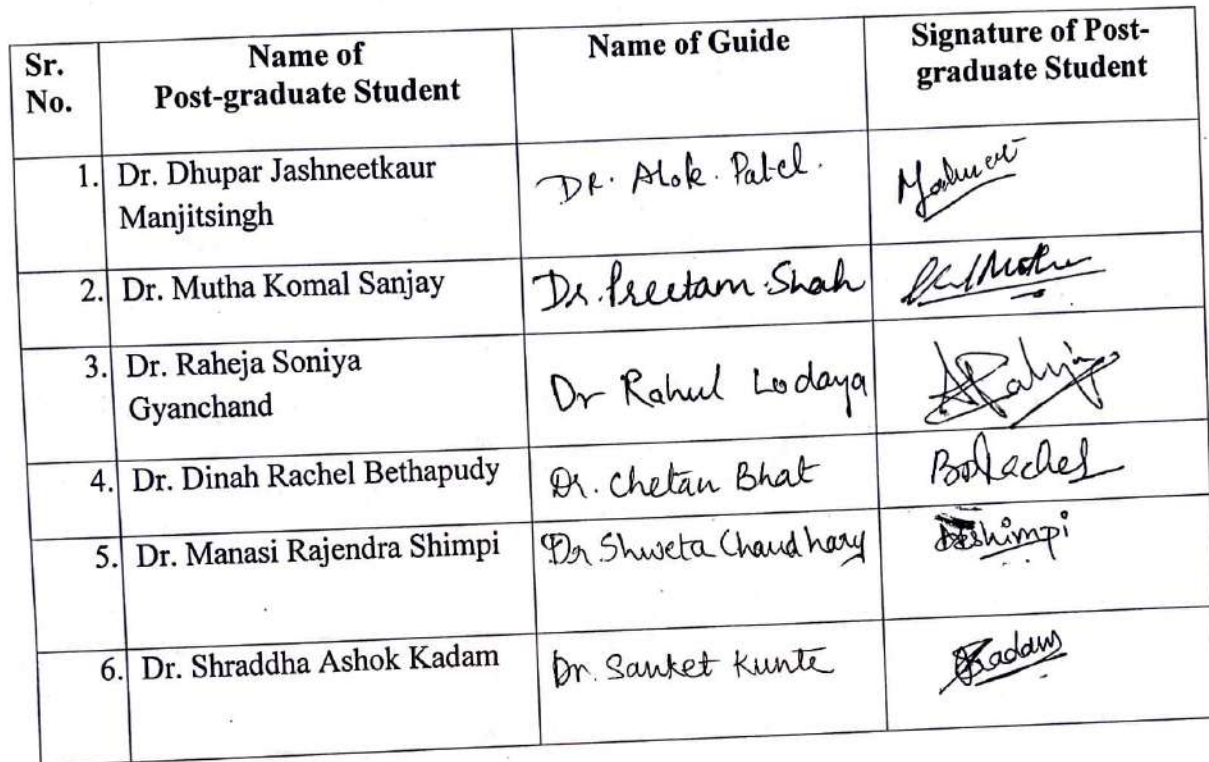 Sr. No.
Name of
Post-graduate Student
Name of Guide
Signature of Post-
graduate Student
1.
Dr. Dhupar Jashneetkaur
Manjitsingh
DR. Alok. Patel.
2.
Dr. Mutha Komal Sanjay
Dr. Preetam Shah
Mutha
3.
Dr. Raheja Soniya
Gyanchand
Dr Rahul Lodaya
4.
Dr. Dinah Rachel Bethapudy
Dr. Chetan Bhat
5.
Dr. Manasi Rajendra Shimpi
Dr Shweta Chaudhary
Shimpi
6.
Dr. Shraddha Ashok Kadam
Dr. Sanket Kunte
Kadam